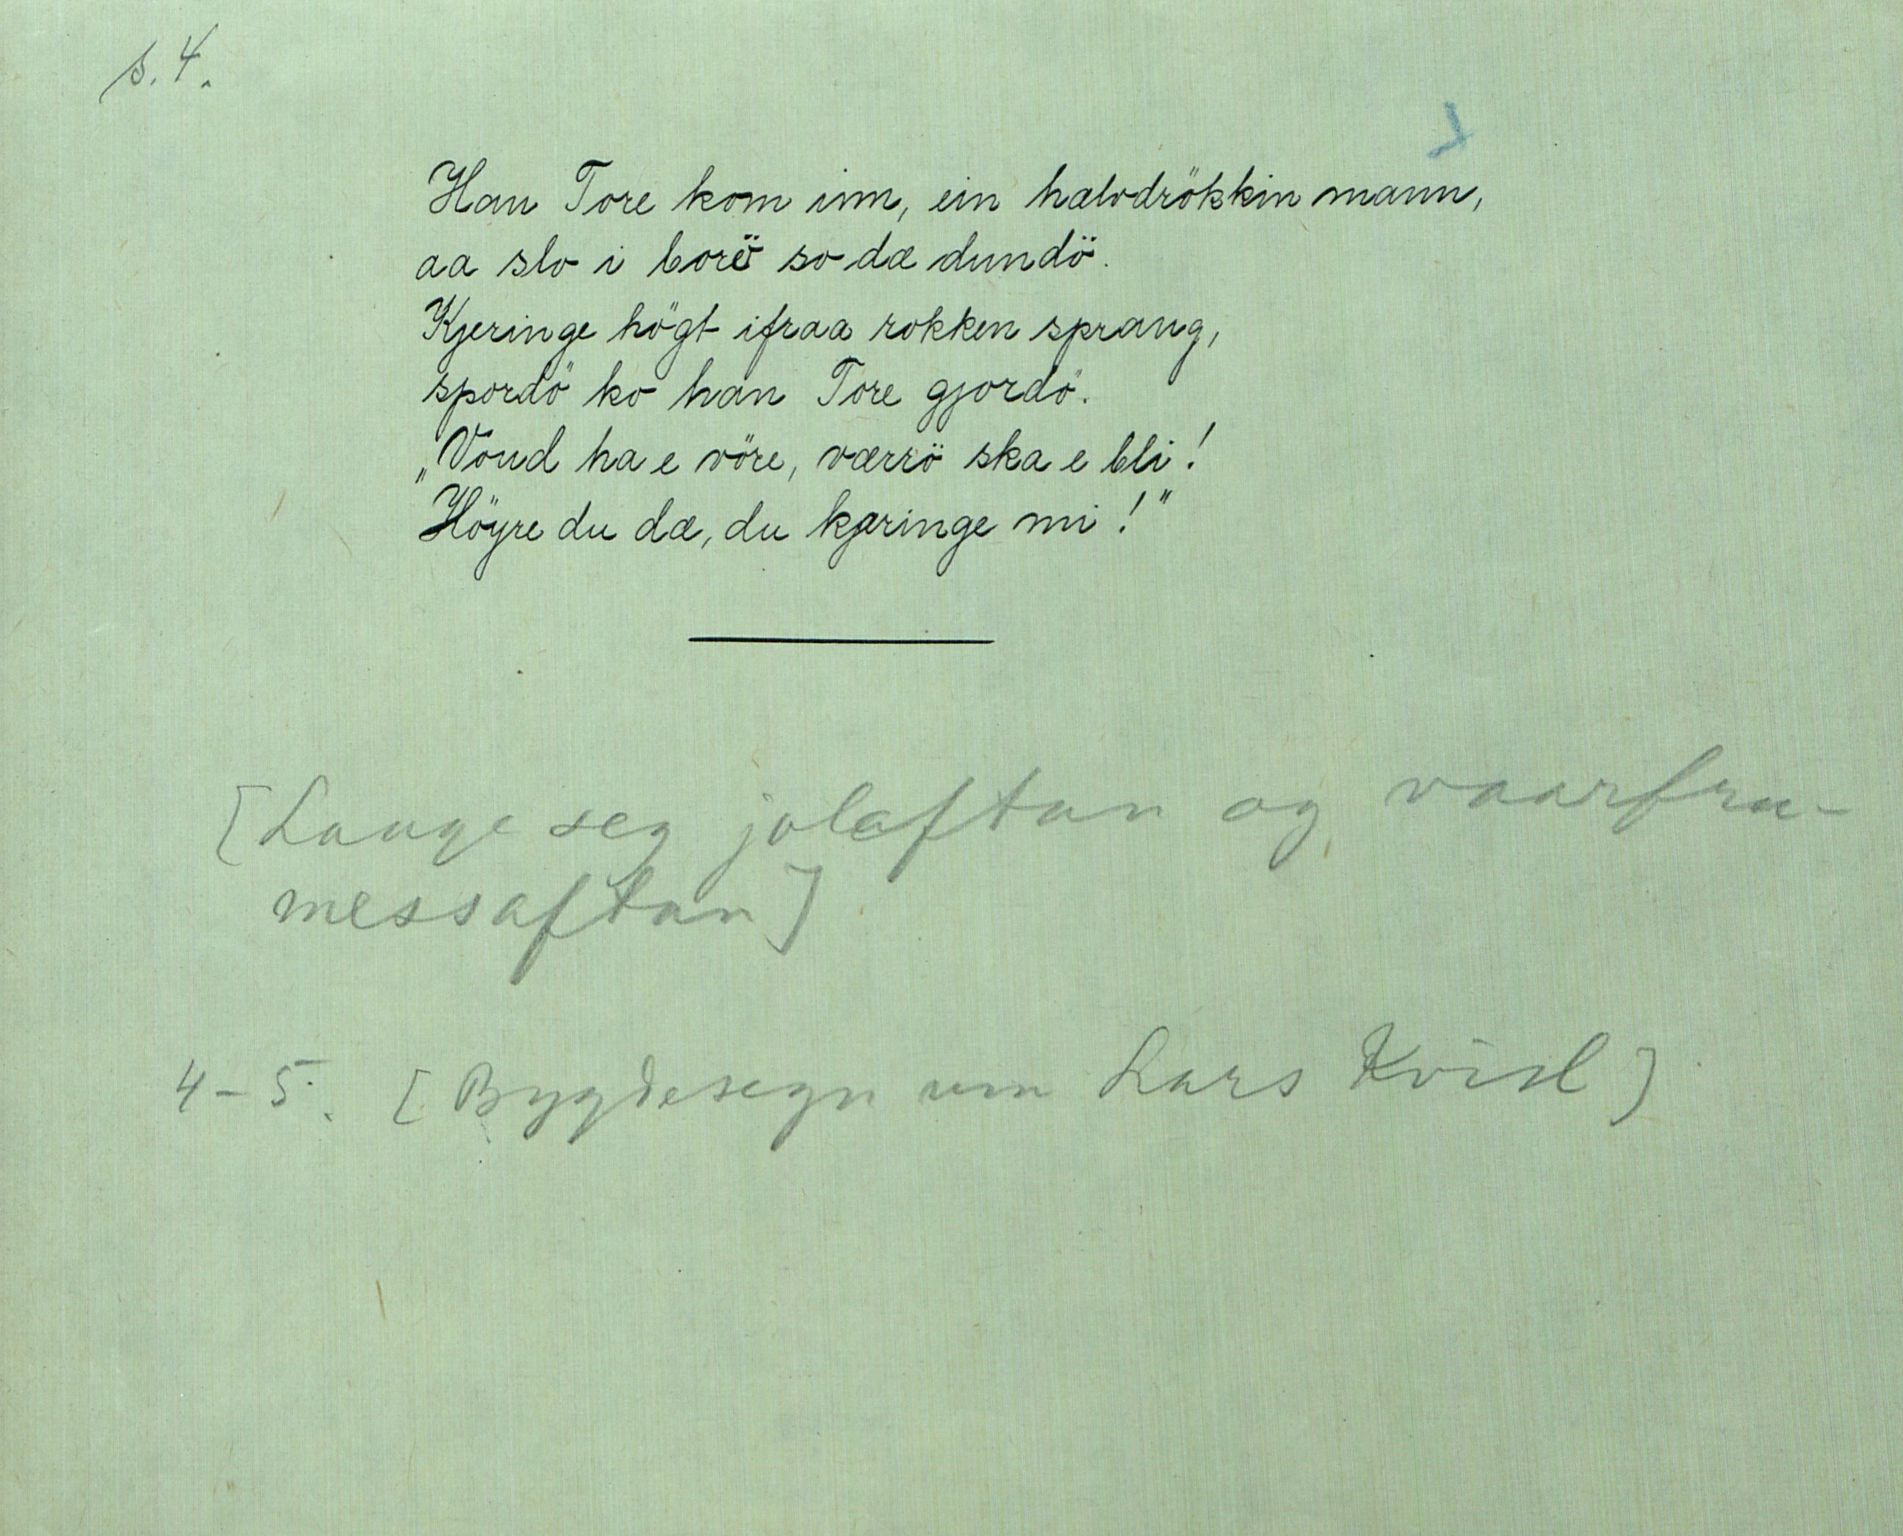 s. 4.
Han Tore kom inn, ein halvdrökkin mann,
aa slo i borö so dæ dundö.
Kjeringe högt ifraa rokken sprang,
spordö ko han Tore gjordö.
„Vond ha e vöre, værrö ska e bli!
Höyre du dæ, du kjæringe mi!"
[Lauge seg jolaftan og vaarfru-
messaftan]
4-5. [Bygdesegn um Lars Kvisl]